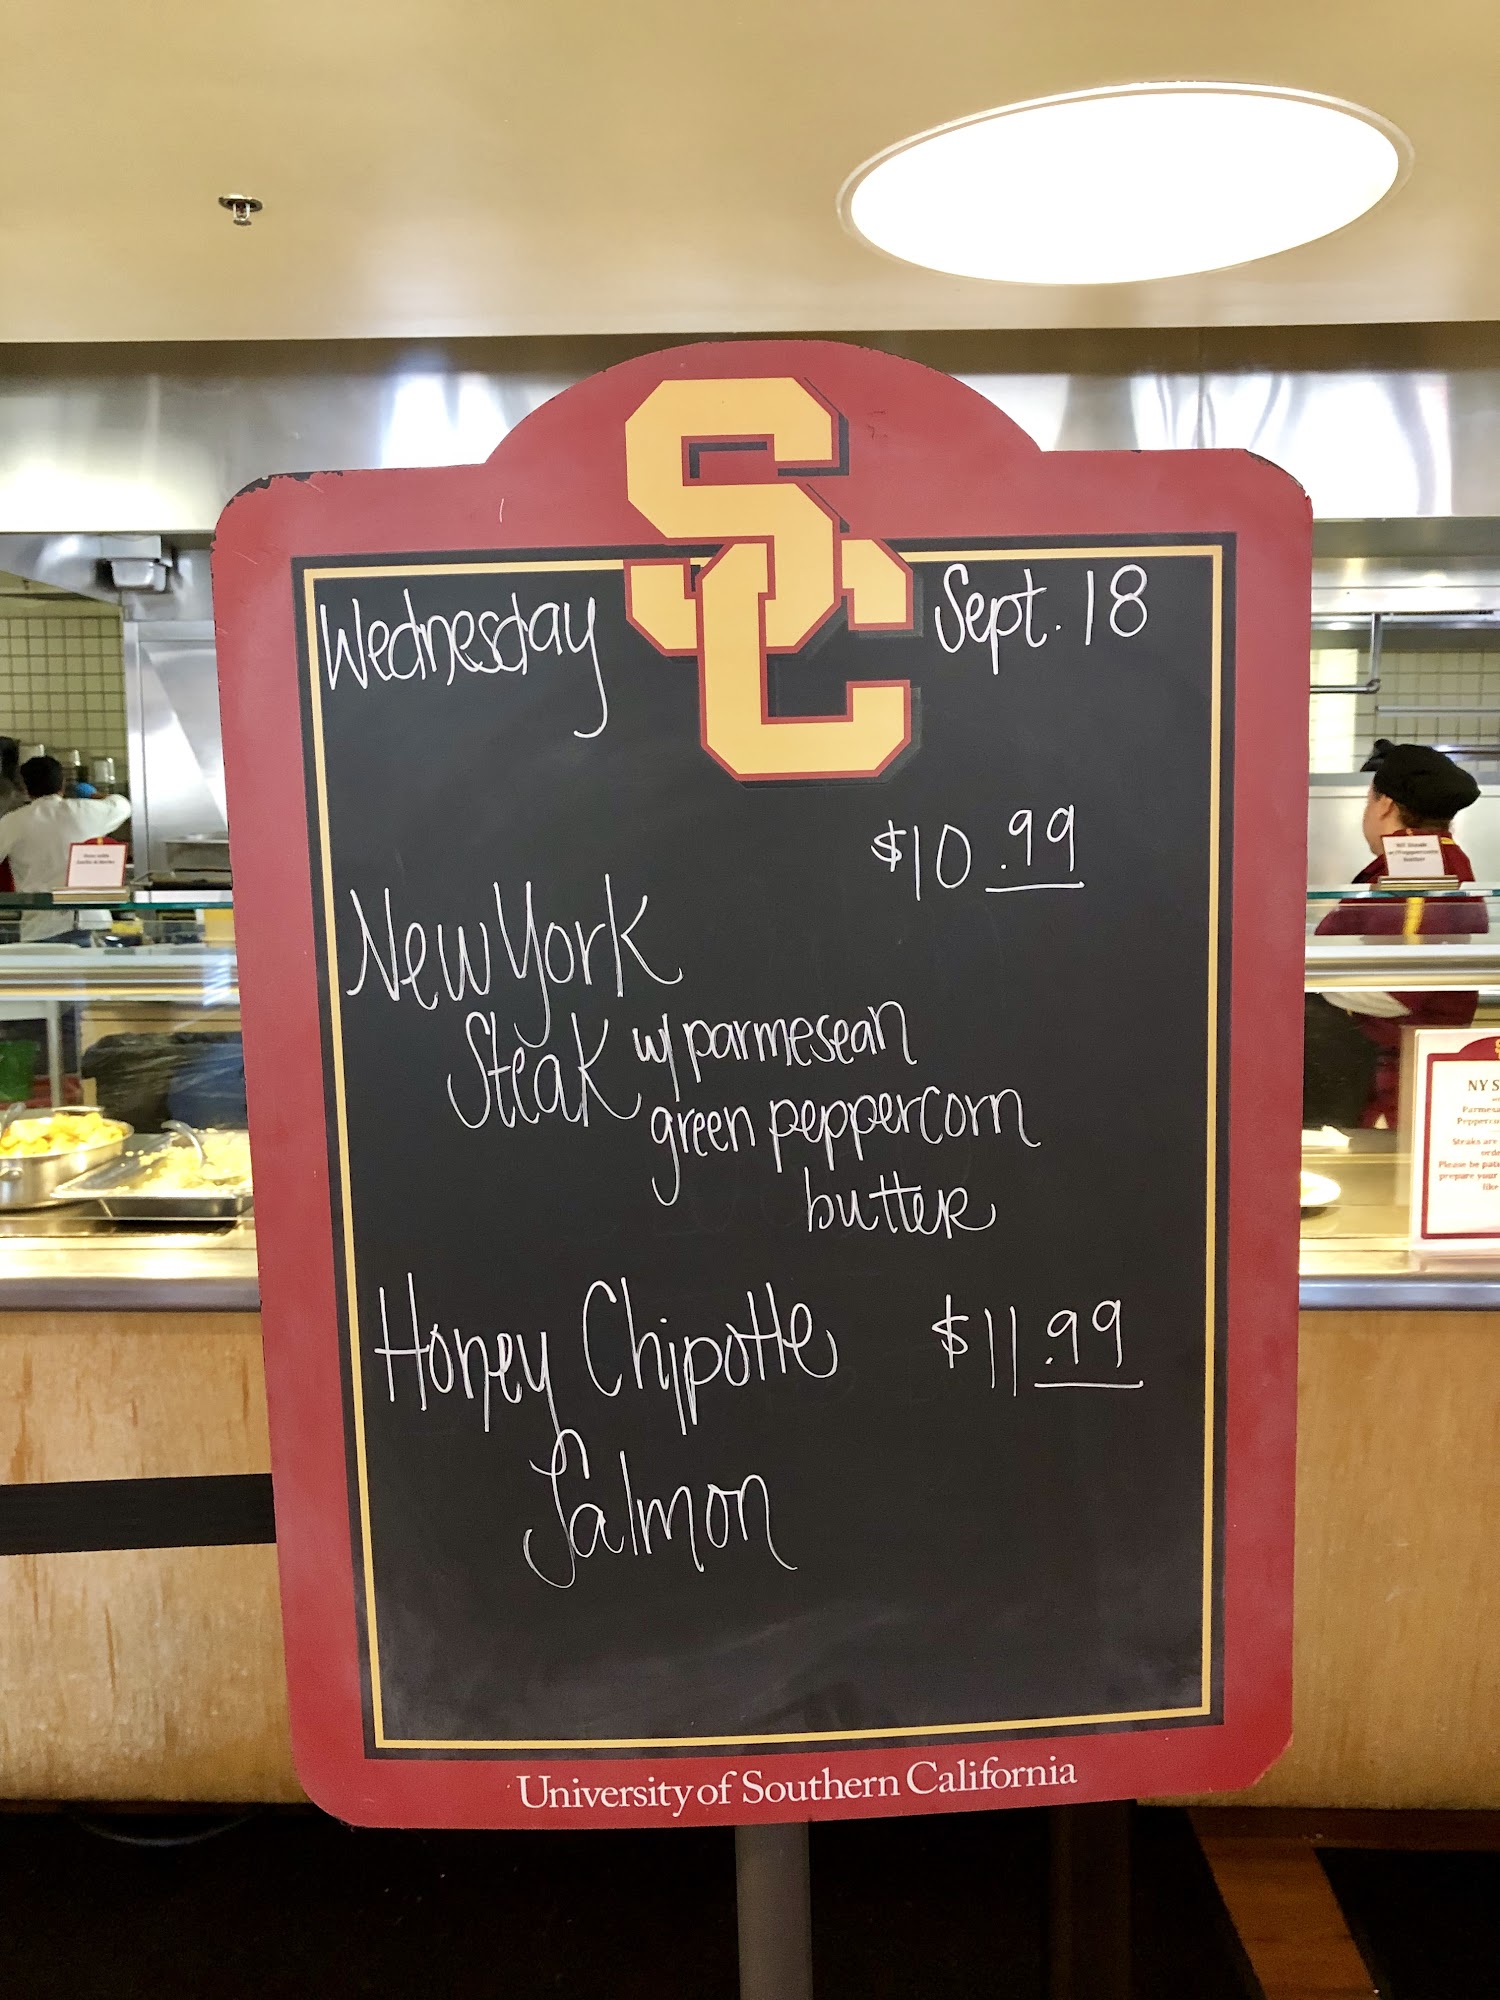 SC
Wednesday Sept. 18
$10.99
New York
Steak w/ parmesean
green peppercorn
butter
Honey Chipotle $11.99
Salmon
University of Southern California
NY Steak
w/Peppercorn
Butter
NY S
Parmesa
Pepperco
Steaks are
orde
Please be pati
prepare your
like